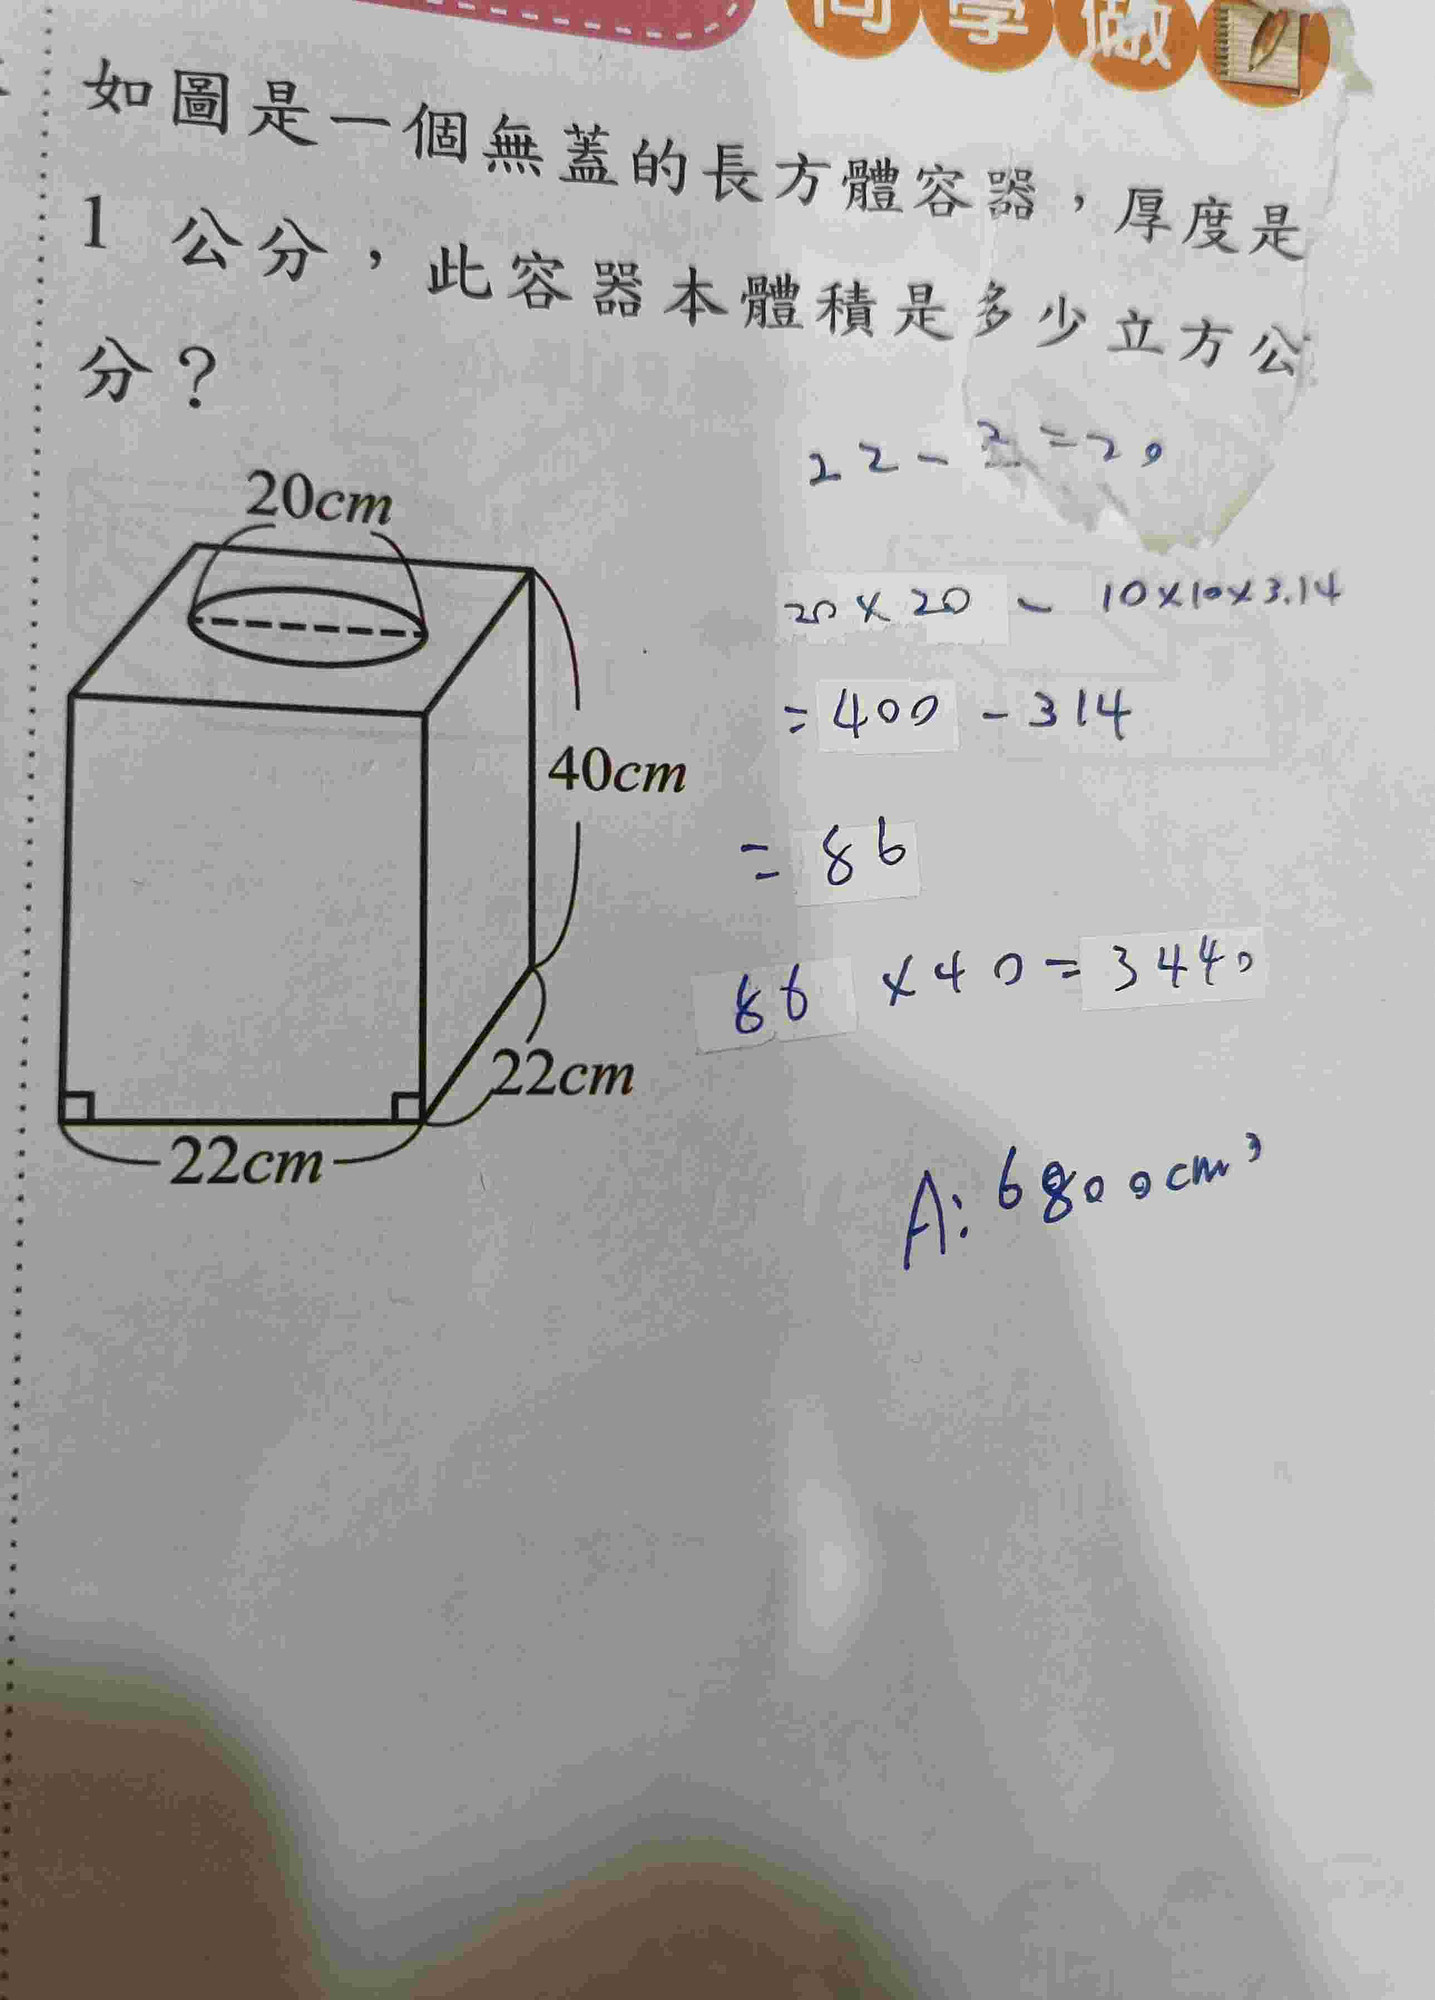 同學做
如圖是一個無蓋的長方體容器，厚度是
1 公分，此容器本體積是多少立方公
分？
22-2=20
20cm
20×20-10×10×3.14
=400-314
40cm
=86
86×40=3440
22cm
22cm
A:6800cm³